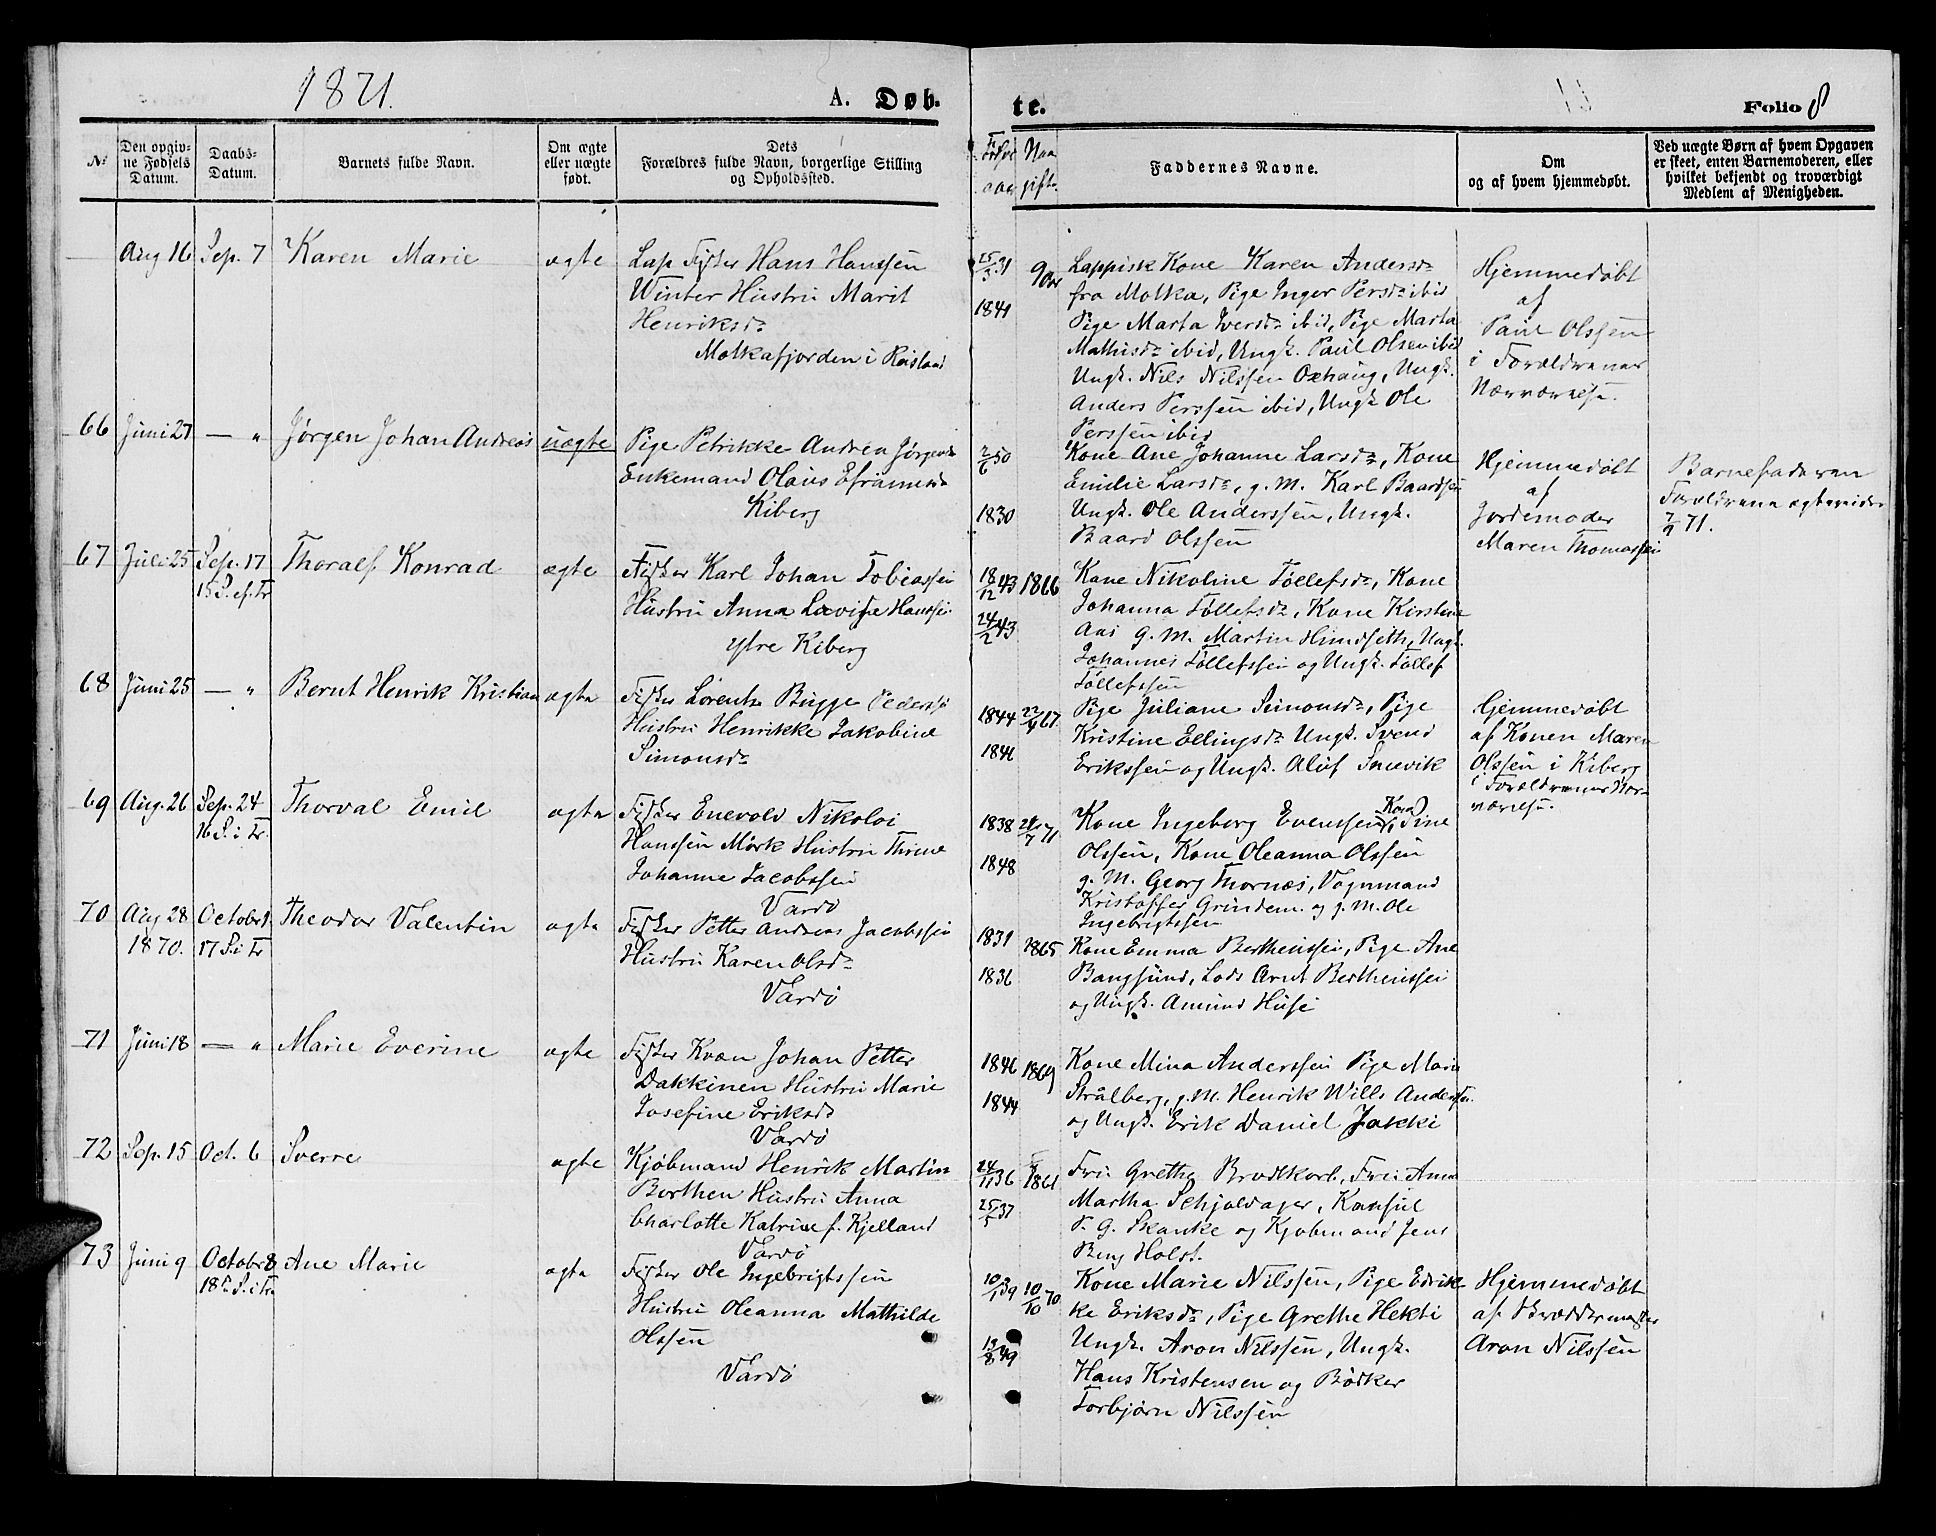 1871.
A. Døb-
te.
Folio 8
№
Den opgiv-
ne Fødsels
Datum.
Daabs-
Datum.
Barnets fulde Navn.
Om ægte
eller uægte
født.
Dets
Forældres fulde Navn, borgerlige Stilling
og Opholdssted.
Faddernes Navne.
Om
og af hvem hjemmedøbt.
Ved uægte Børn af hvem Opgaven
er skeet, enten Barnemoderen, eller
hvilket bekjendt og troværdigt
Medlem af Menigheden.
Aug 16 Sep. 7 Karen Marie ægte
Lap Fisker Hans Hanssen
Winter Hustru Marit
Henriksd.
Molkafjorden i
25/3 31
1841
Lappisk Kone Karen Andersd.
fra Molka, Pige Inger Persd. ibid
Pige Marta Iversd. ibid, Pige Marta
Mathisd. ibid, Ungk. Paul Olsen ibid
Ungk. Nils Nilssen Oxhaug, Ungk.
Anders Perssen ibid, Ungk. Ole
Perssen ibid
Hjemmedøbt
af
Paul Olssen
i Forældrenes
Nærværelse.
66 Juni 27 — " Jørgen Johan Andreas uægte
Pige Petrikke Andrea Jørgensd.
Enkemand Olaus Efraimsd.
Kiberg
2/6 50
1830
Kone Ane Johanne Larsd., Kone
Emilie Larsd., g. M. Karl Baardsen
Ungk. Ole Anderssen, Ungk.
Baard Olssen
Hjemmedøbt
af
Jordemoder
Maren Thomassen
Barnefaderen
Forældrene ægteviede
7/9 71.
67 Juli 25 Sep. 17 Thoralf Konrad ægte
15 S. ef. Tr
Fisker Karl Johan Tobiassen
Hustru Anna Lovise Hanssen
ytre Kiberg
18/12 43 1866
24/2 43
Kone Nikoline Tollefsd., Kone
Johanna Tollefsd., Kone Kirstine
Aas g. M. Martin Himdseth, Ungk.
Johannes Tollefssen og Ungk. Tollef
Tollefssen
68 Juni 25 — " Bernt Henrik Kristian ægte
Fisker Lorents Bugge Pederssen
Hustru Henrikke Jakobine
Simonsd.
1844 22/9 67.
1841
Pige Juliane Simonsd., Pige
Kristine Ellingsd. Ungk. Svend
Erikssen og Ungk. Aluf Snevik
Hjemmedøbt
af Konen Maren
Olssen i Kiberg
i Forældrenes Nær-
værelse.
69 Aug. 26 Sep. 24 Thorval Emil ægte
16 S. i Tr.
Fisker Enevold Nikolai
Hanssen Mørk Hustru Thrine
Johanne Jacobssen
Vardø
1838
1848
Kone Ingeborg Evenssen, Kone Sine
Olssen, Kone Oleanna Olssen
g. M. Georg Thornæs, Vognmand
Kristoffer Grindem. og g. M. Ole
Ingebrigtssen
70 Aug 28 October 1 Theodor Valentin ægte
1870. 17 S. i Tr
Fisker Petter Andreas Jacobssen
Hustru Karen Olsd.
Vardø
1831 1865
1836
Kone Emma Berthenssen, Pige Ane
Bangsund, Lods Arnt Berthenssen
og Ungk. Amund Huse
71 Juni 18 — " Marie Everine ægte
Fisker Kvæn Johan Petter
Dakkinen Hustru Marie
Josefine Eriksd.
Vardø
1846 1869
1844
Kone Mina Anderssen Pige Marie
Strålberg, g. M. Henrik Wills Anderssen
og Ungk. Erik Daniel Jakki
72 Sep. 15 Oct. 6 Sverre ægte
Kjøbmand Henrik Martin
Berthen Hustru Anna
Charlotte Katrine f. Kjelland
Vardø
24/11 36 1861
25/5 37
Fru Grethe Brodtkorb, Fru Anna
Martha Schjoldager, Konsul
P. G. Skanke og Kjøbmand Jens
Beng Holst.
73 Juni 9 October 8 Ane Marie ægte
18de S. i Tr.
Fisker Ole Ingebrigtssen
Hustru Oleanna Mathilde
Olssen
Vardø
10/1 39 10/10 70
13/8 49
Kone Marie Nilssen, Pige Edrik-
ke Eriksd., Pige Grethe Hekti
Ungk. Aron Nilssen, Ungk.
Hans Kristensen og Bødker
Torbjørn Nilssen
Hjemmedøbt
af
Aron Nilssen